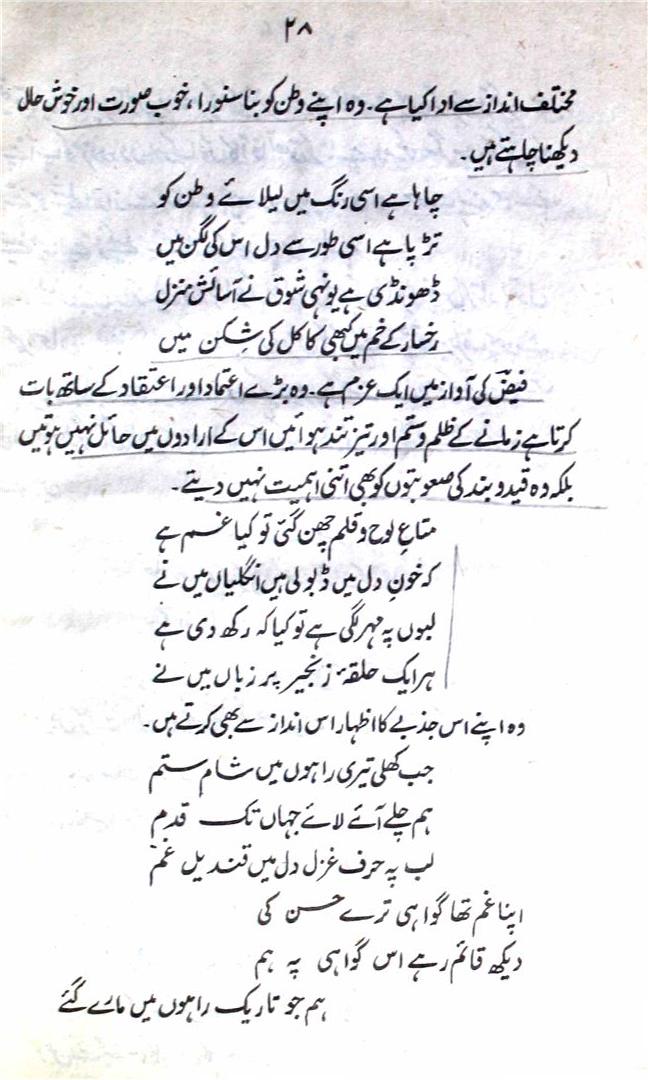 ۲۸
مختلف انداز سے ادا کیا ہے۔ وہ اپنے وطن کو بنا سنورا، خوب صورت اور خوش حال
دیکھنا چاہتے ہیں۔
چاہا ہے اسی رنگ میں لیلائے وطن کو
تڑپا ہے اسی طور سے دل اس کی لگن میں
ڈھونڈی ہے یونہی شوق نے آسائش منزل
رخسار کے خم میں کبھی کاکل کی شِکن میں
فیضؔ کی آواز میں ایک عزم ہے۔ وہ بڑے اعتماد اور اعتقاد کے ساتھ بات
کرتا ہے زمانے کے ظلم و ستم اور تیز تند ہوائیں اس کے ارادوں میں حائل نہیں ہوتیں
بلکہ وہ قید و بند کی صعوبتوں کو بھی اتنی اہمیت نہیں دیتے۔
متاعِ لوح و قلم چھن گئی تو کیا غم ہے
کہ خونِ دل میں ڈبولی ہیں انگلیاں میں نے
لبوں پہ مہر لگی ہے تو کیا کہ رکھ دی ہے
ہر ایک حلقۂ زنجیر پر زباں میں نے
وہ اپنے اس جذبے کا اظہار اس انداز سے بھی کرتے ہیں۔
جب کھلی تیری راہوں میں شام ستم
ہم چلے آئے لائے جہاں تک قدم
لب پہ حرف غزل دل میں قندیل غم
اپنا غم تھا گواہی ترے حسن کی
دیکھ قائم رہے اس گواہی پہ ہم
ہم جو تاریک راہوں میں مارے گئے